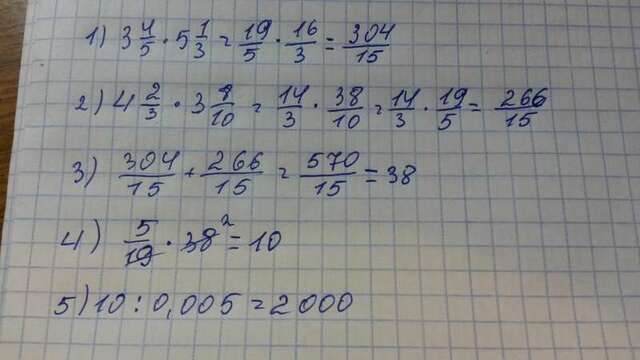 1) 3 4/5 · 5 1/3 = 19/5 · 16/3 = 304/15
2) 4 2/3 · 3 8/10 = 14/3 · 38/10 = 14/3 · 19/5 = 266/15
3) 304/15 + 266/15 = 570/15 = 38
4) 5/19 · 38² = 10
5) 10 : 0,005 = 2000